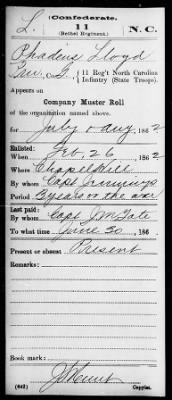 (Confederate.)
L. 11 N.C.
(Bethel Regiment.)
Phadeus Lloyd
Priv., Co. G, 11 Reg't North Carolina
Infantry (State Troops).
Appears on
Company Muster Roll
of the organization named above,
for July & Aug, 1862
Enlisted:
When Feb. 26, 1862
Where Chapel Hill
By whom Capt Jennings
Period 3 years or the war
Last paid:
By whom Capt J M Tate
To what time June 30, 186
Present or absent Present
Remarks:
Book mark:
(642) Copyist.